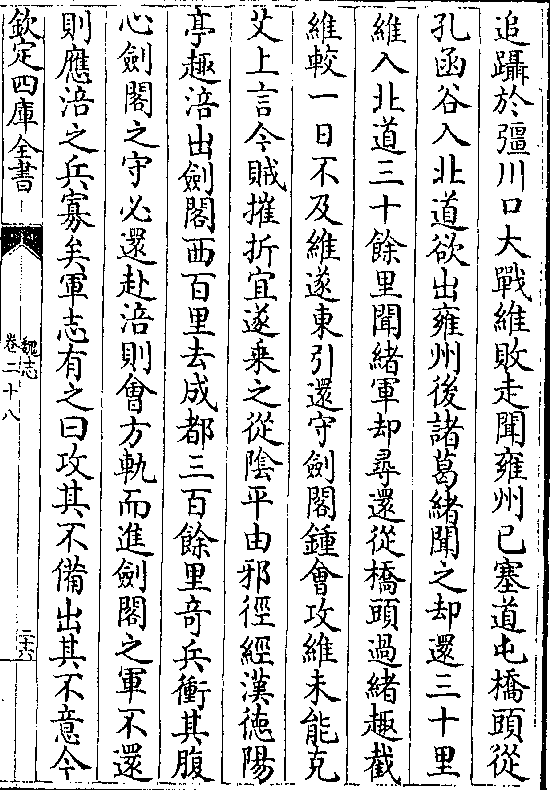 追躡於彊川口大戰維敗走聞雍州已塞道屯橋頭從
孔函谷入北道欲出雍州後諸葛緒聞之却還三十里
維入北道三十餘里聞緒軍却尋還從橋頭過緒趣截
維較一日不及維遂東引還守劍閣鍾會攻維未能克
艾上言今賊摧折宜遂乘之從陰平由邪徑經漢徳陽
亭趣涪出劍閣西百里去成都三百餘里竒兵衝其腹
心劍閣之守必還赴涪則會方軌而進劍閣之軍不還
則應涪之兵寡矣軍志有之曰攻其不備出其不意今
欽定四庫全書
魏志
卷二十八
二十六